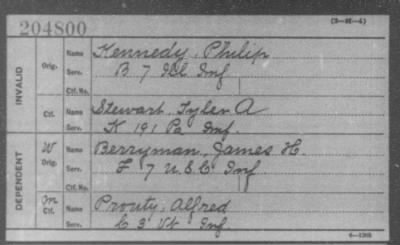 204800
(3-85-4)
INVALID
Orig. Name Kennedy, Philip
Serv. B 7 Ill Inf
Ctf. No.
Ctf. Name Stewart, Tyler A
Serv. K 191 Pa Inf.
DEPENDENT
W Orig. Name Berryman, James H.
Serv. F 7 U.S.C Inf
Ctf. No.
m Ctf. Name Prouty, Alfred
Serv. C 3 Vt Inf